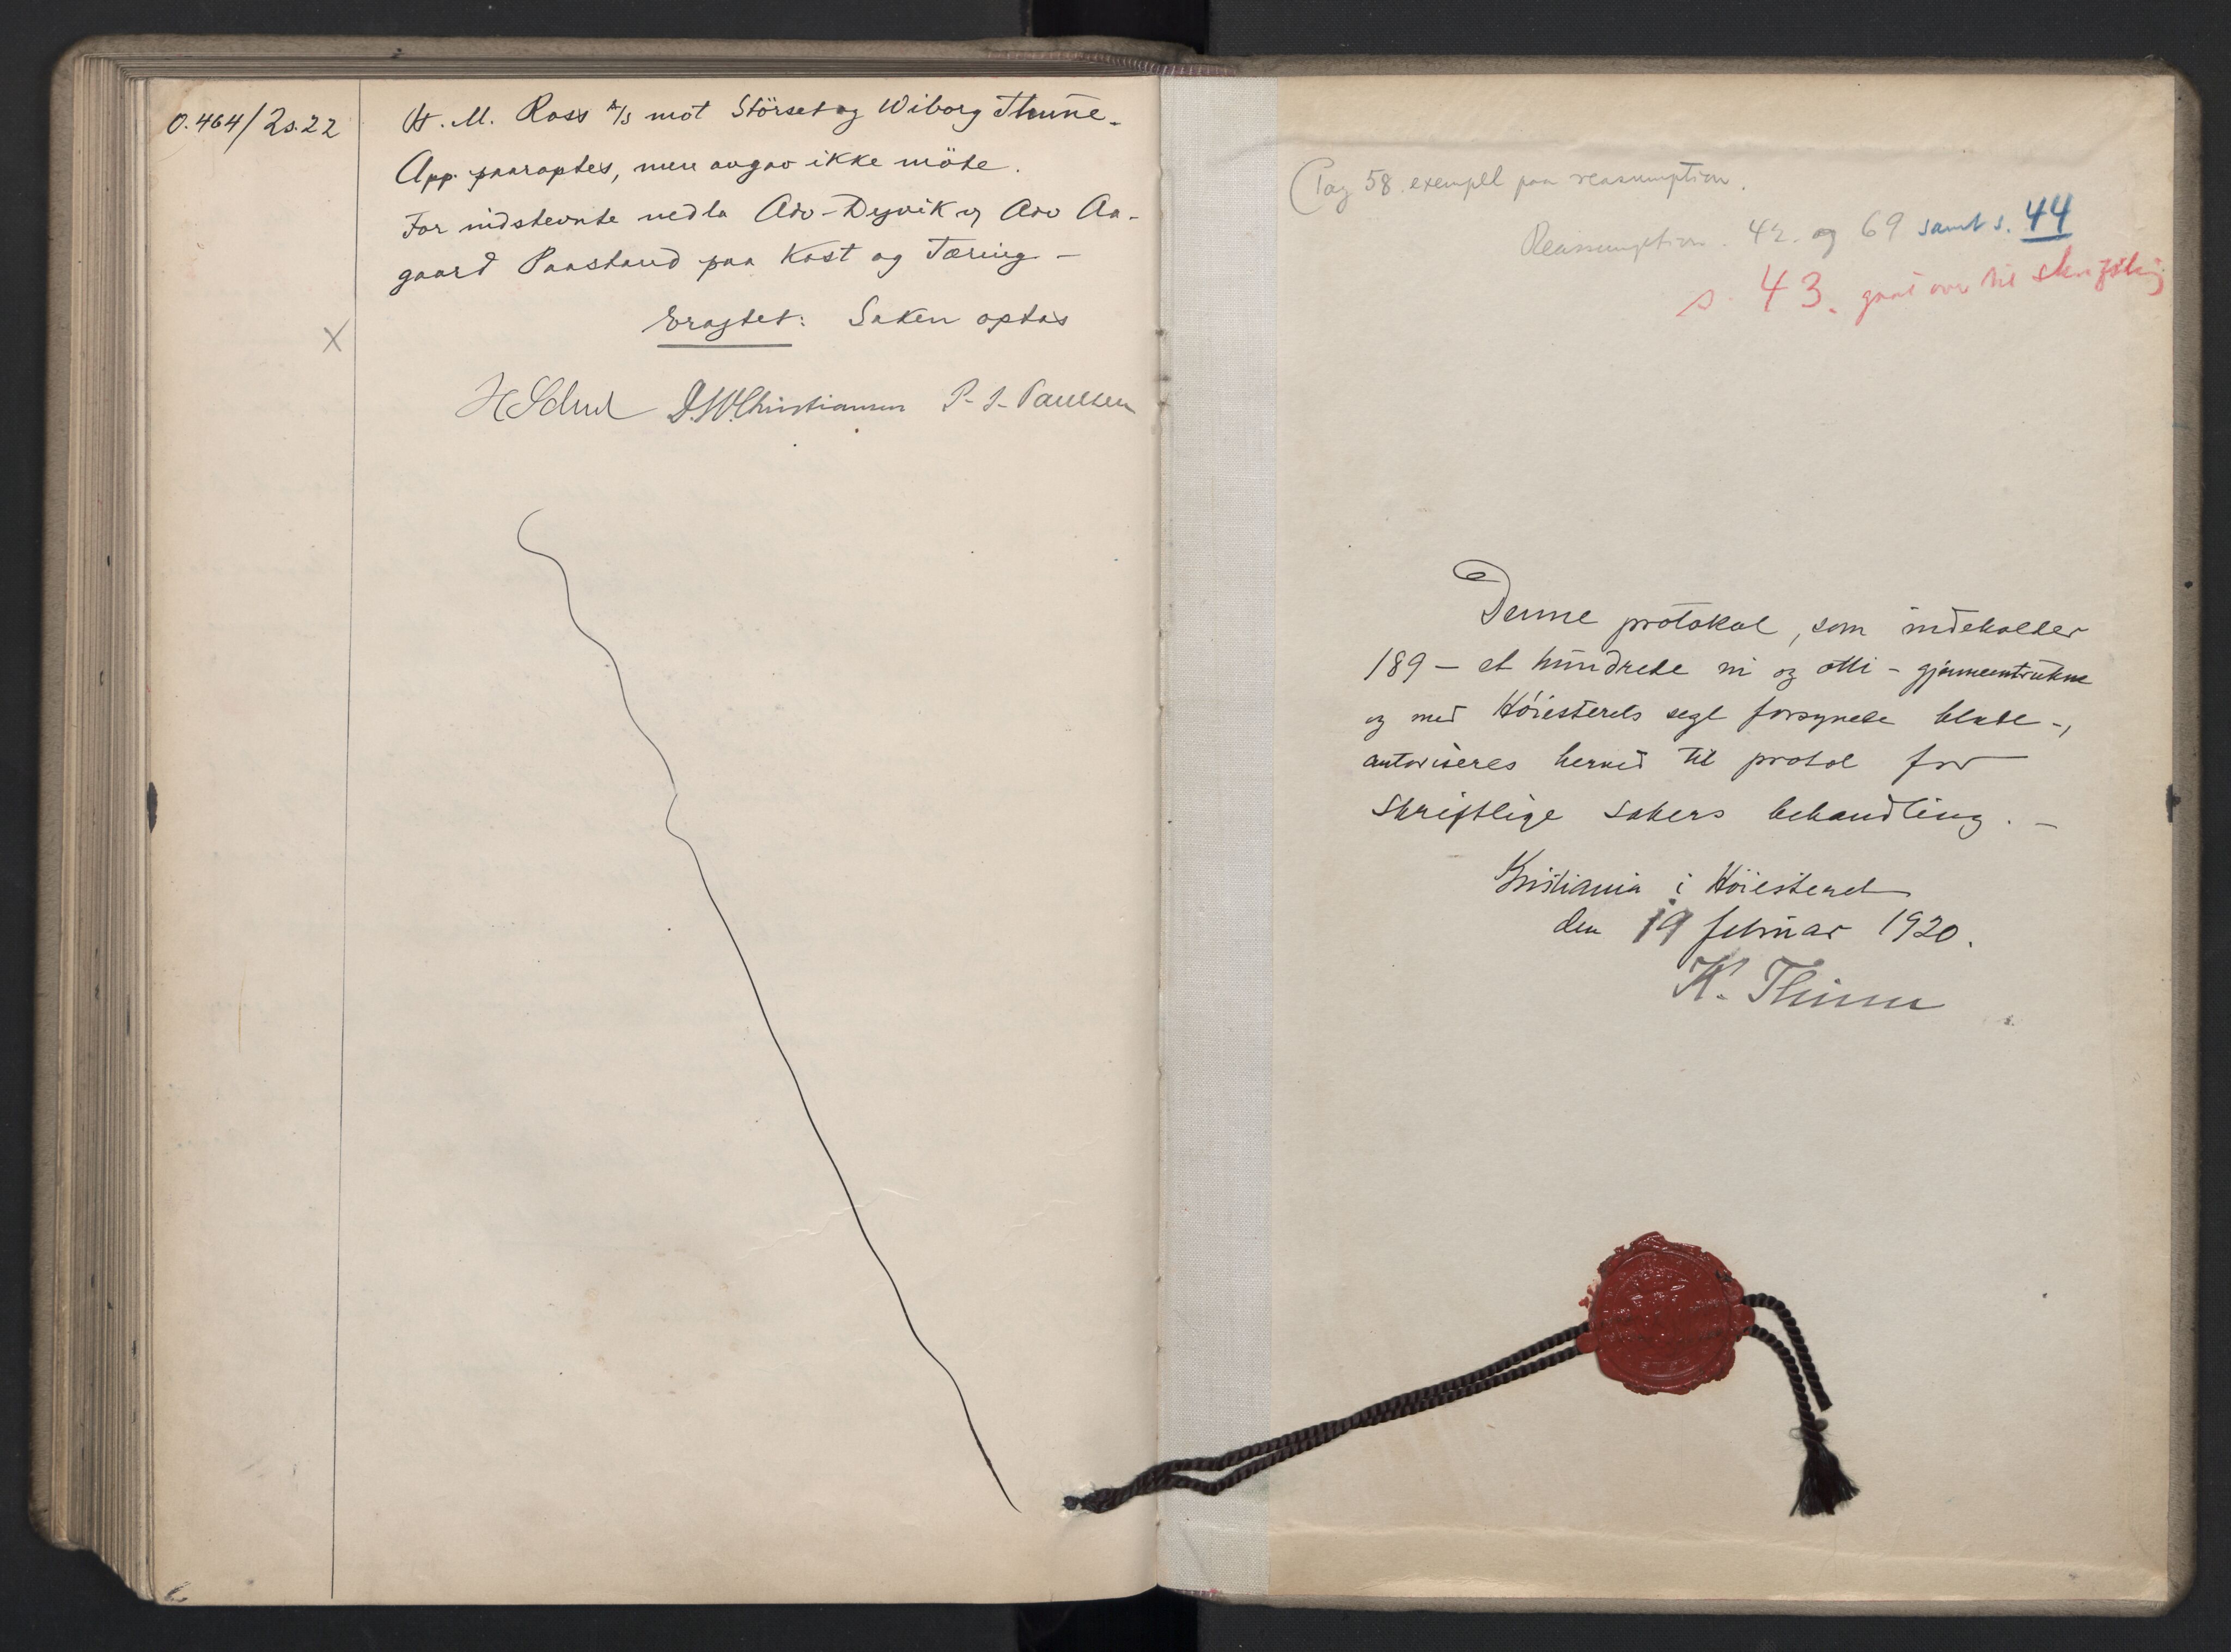 O.464/2s.22
H. M. Ross A/S mot Störset og Wiborg Thune.
App. paaroptes, men avgav ikke möte.
For indstevnte nedla Adv. Dyvik og Adv Aa-
gaard Paastand paa Kost og Tæring -
Eragtet: Saken optas
X
D.W.Christiansen P. I. Paulsen
(Pag 58. exempel paa reasumption.
Reassumption. 42. og 69 samt s. 44
s. 43. gaat over til skriftlig
Denne protokol, som indeholder
189 - et hundrede ni og otti - gjennemtrukne
og med Höiesterets segl forsynede blade -,
autoriseres herved til protol for
skriftlige sakers behandling. -
Kristiania i Höiesteret
den 19 februar 1920.
K. Thinn